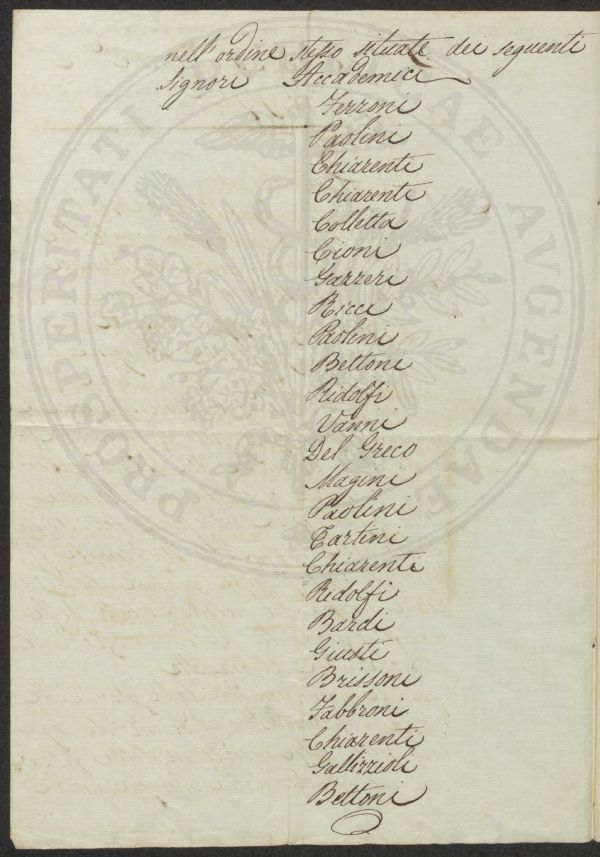 nell'ordine stesso situate dei seguenti
Signori Accademici
Ferroni
Paolini
Chiarenti
Chiarenti
Colletta
Cioni
Gazzeri
Ricci
Paolini
Bettoni
Ridolfi
Vanni
Del Greco
Magini
Paolini
Tartini
Chiarenti
Ridolfi
Bardi
Giusti
Brissoni
Fabbroni
Chiarenti
Gallizzioli
Bettoni
PROSPERITATI
AVGENDAE